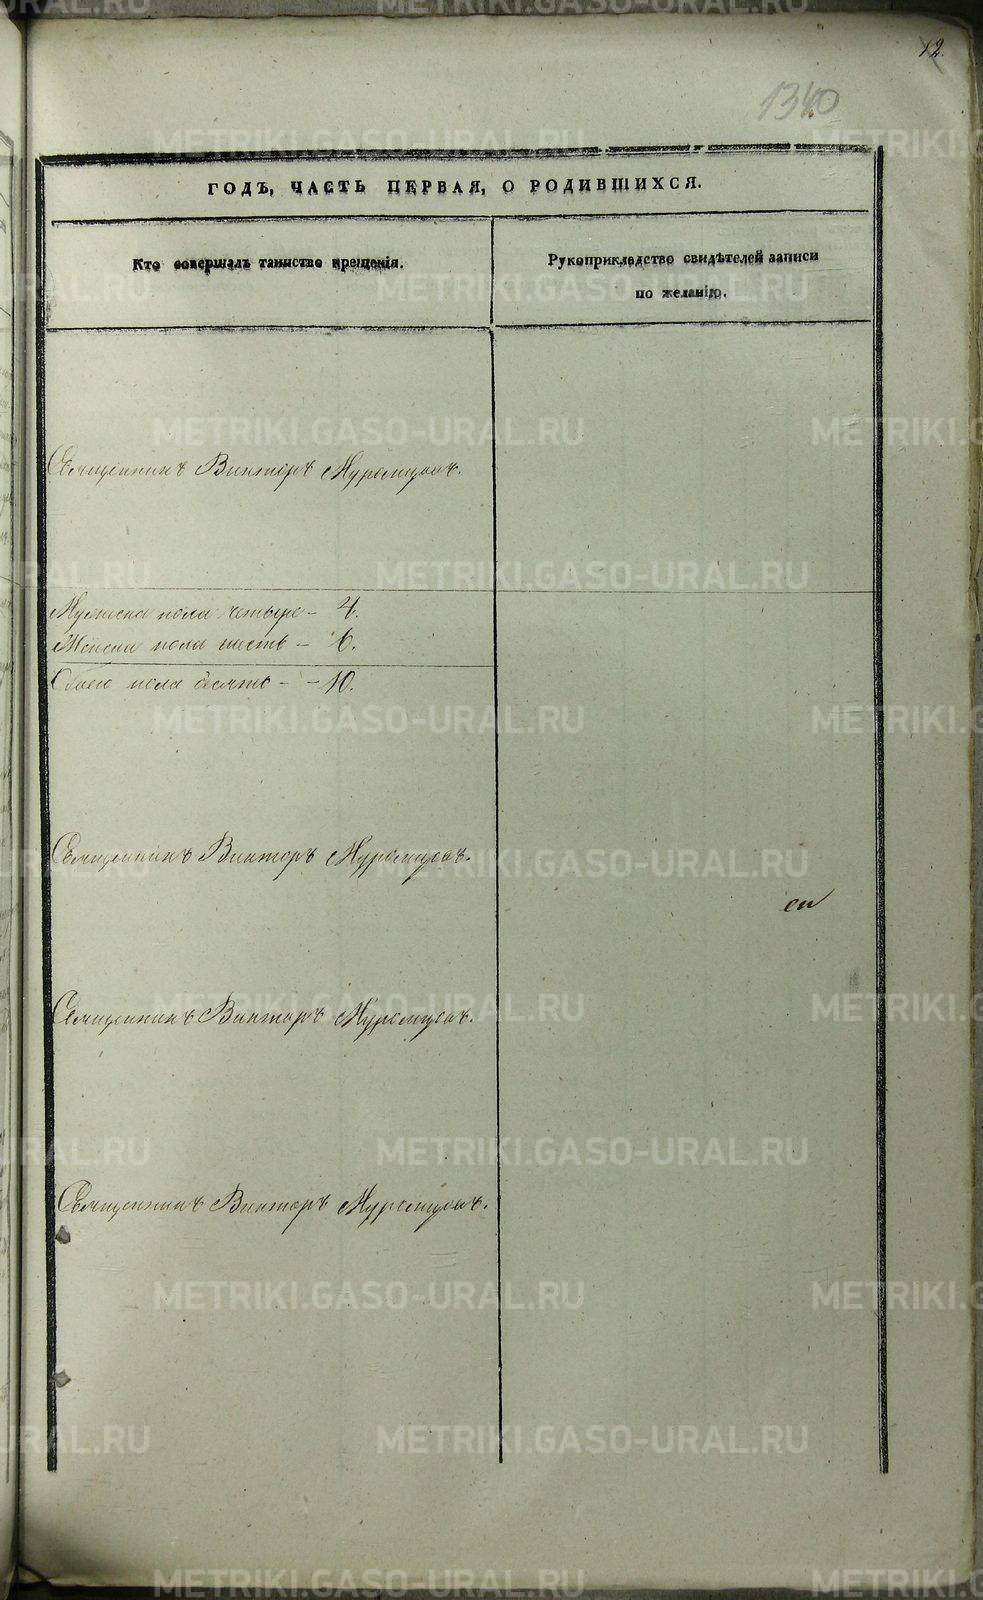 12.
1340
ГОДЪ, ЧАСТЬ ПЕРВАЯ, О РОДИВШИХСЯ.
Кто совершалъ таинство крещенія.
Рукоприкладство свидѣтелей записи
по желанію.
Священникъ Викторъ Муромцовъ.
Мужеска пола четыре – 4.
Женска пола шесть – 6.
Обоего пола десять – – 10.
Священникъ Викторъ Муромцовъ.
Священникъ Викторъ Муромцовъ.
Священникъ Викторъ Муромцовъ.
METRIKI.GASO-URAL.RU